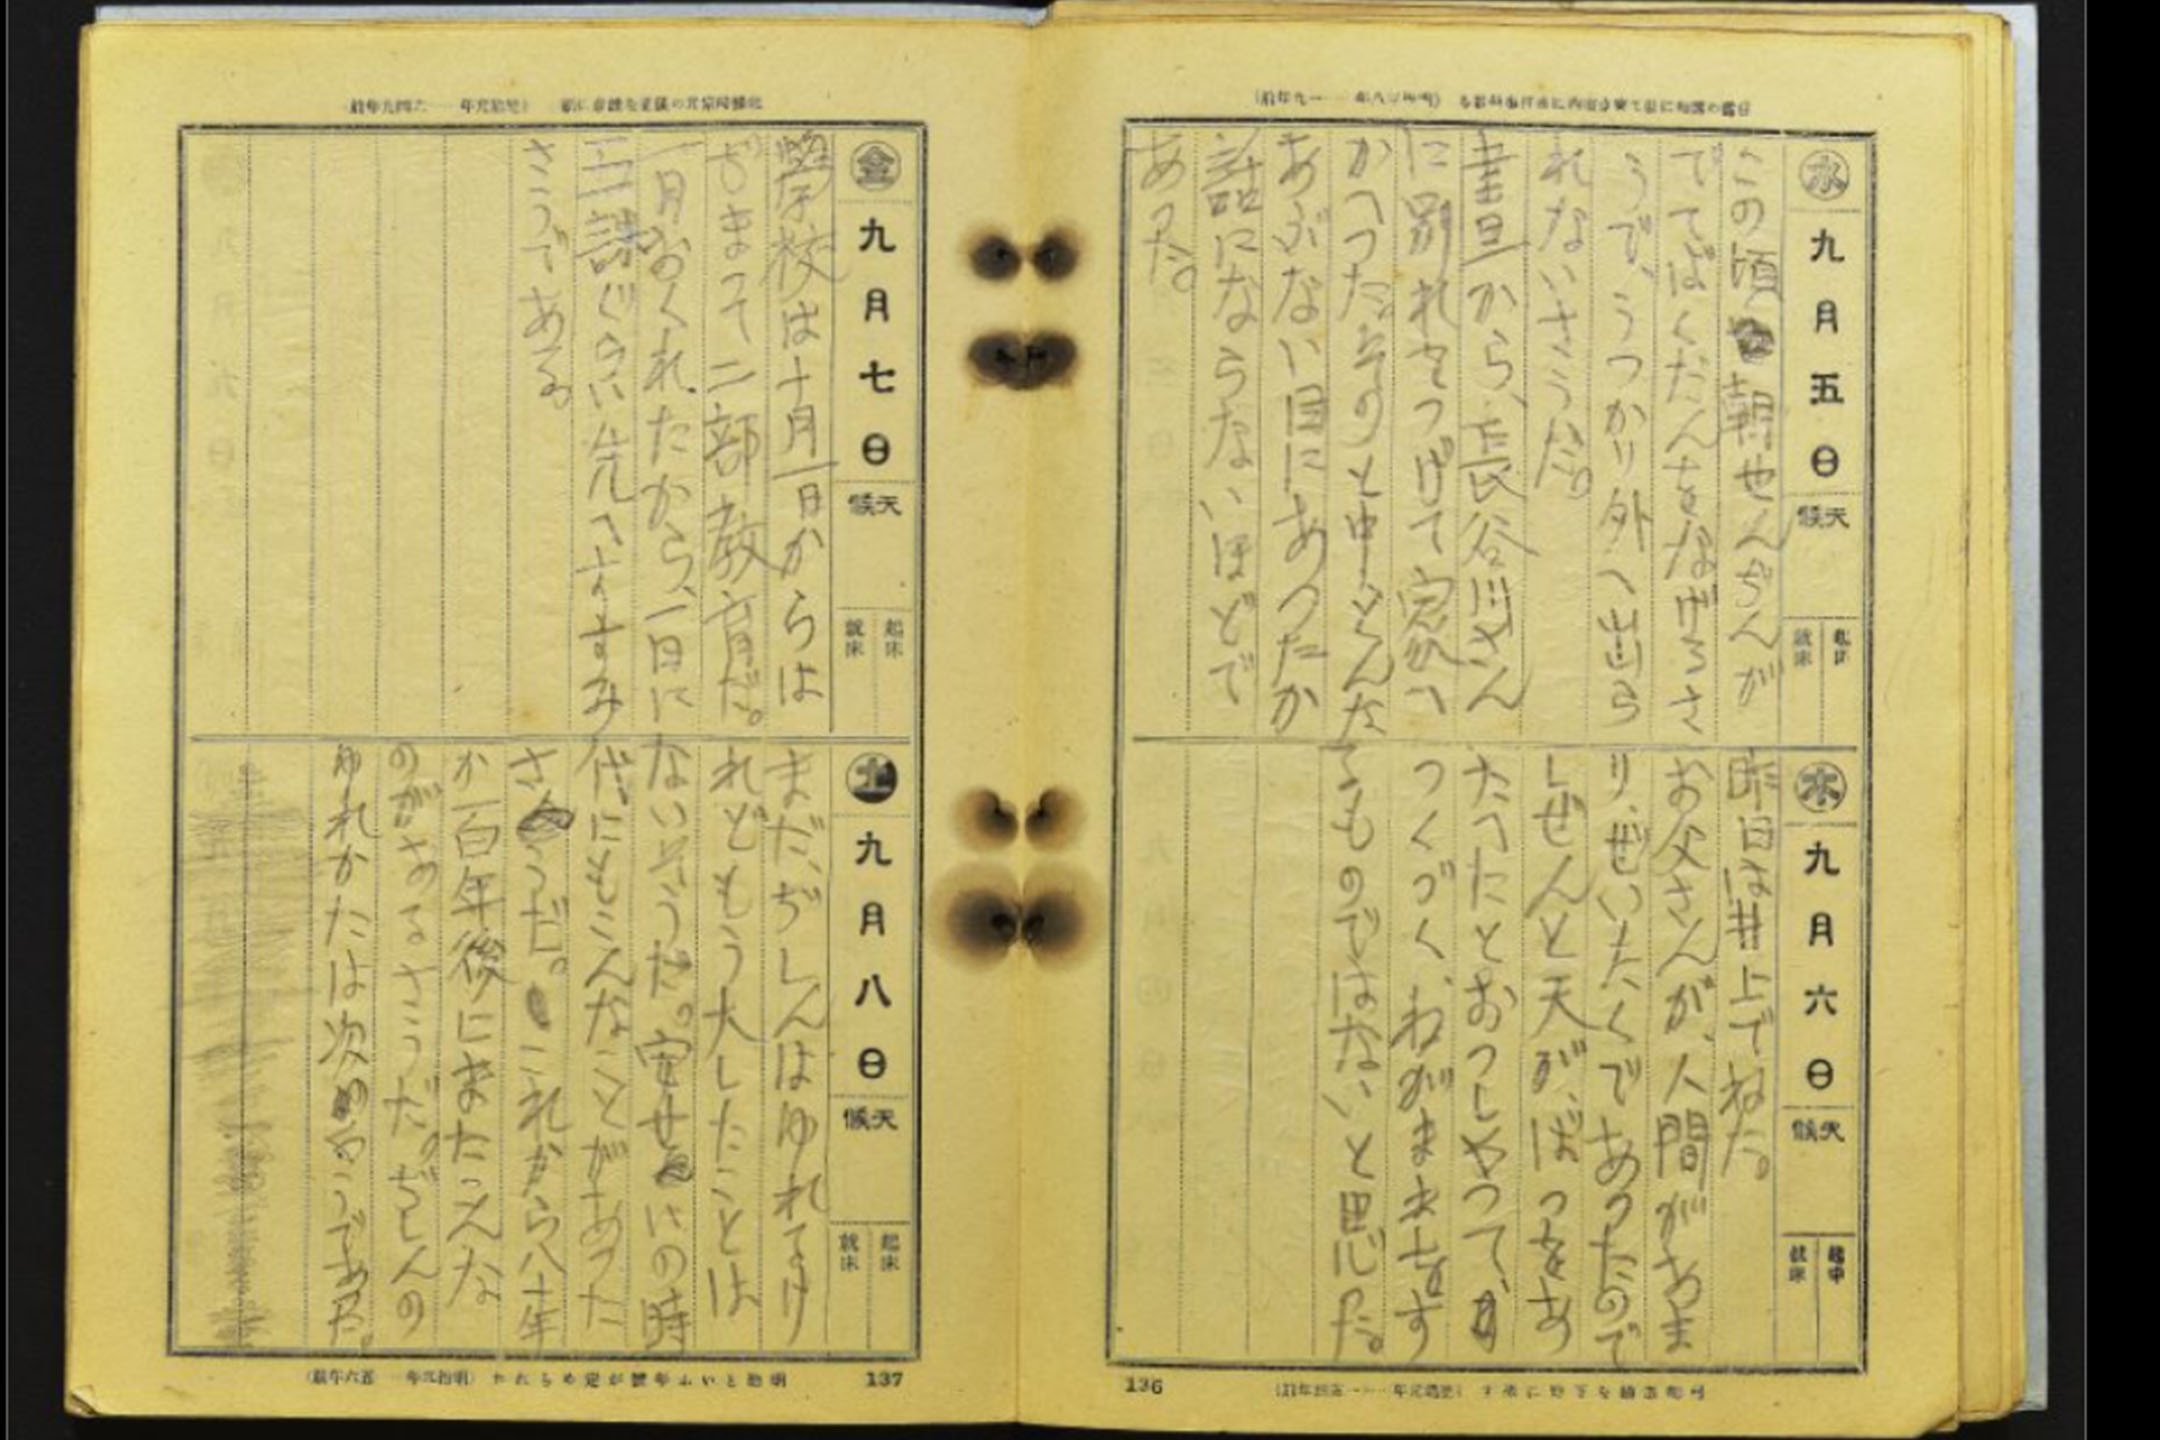 水
九月五日
天候
起床
就床
この頃朝せんぢんが
でてばくだんをなげるさ
うで、うつかり外へ出ら
れないさうだ。
から、長谷川さん
に別れをつげて家へ
かへつた。その と中とんだ
あぶない目にあつたか
話にならないほどで
あつた。
木
九月六日
天候
就床
昨日は井上でねた。
お父さんが、人間があま
り、ぜいたくであつたので
しぜんと天が、ばつをあ
たへたとおつしやつて、
つくづく、わがまま
てものではないと思つた。
136
金
九月七日
天候
起床
就床
學校は十月一日からは
じまつて二部教育だ。
一月おくれたから、一日に
三課ぐらい先へすすみ
さうである。
土
九月八日
天候
起床
就床
まだ、ぢしんはゆれてけ
れどももう大したことは
ないさうだ。安せいの時
代にもこんなことがあつた
さうだ。これから八十年
か百年後にまたこんな
のがあるさうだ。ぢしんの
ゆれかたは次の
137